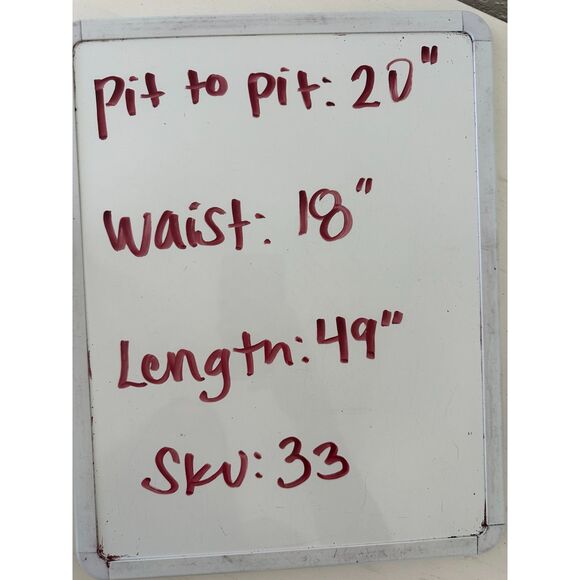 Pit to pit: 20"
Waist: 18"
Length: 49"
SKU: 33